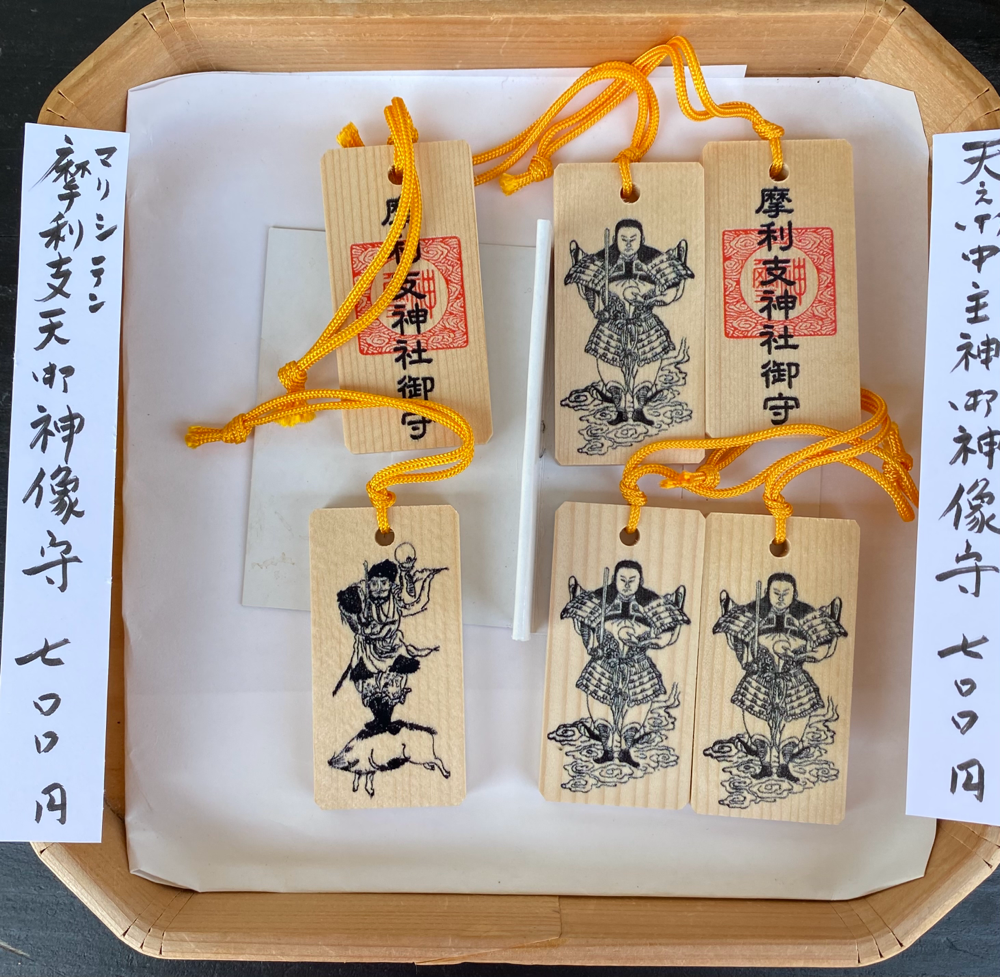 天之御中主神御神像守 七〇〇円
摩利支神社御守
摩利支神社御守
マリシテン
摩利支天御神像守 七〇〇円